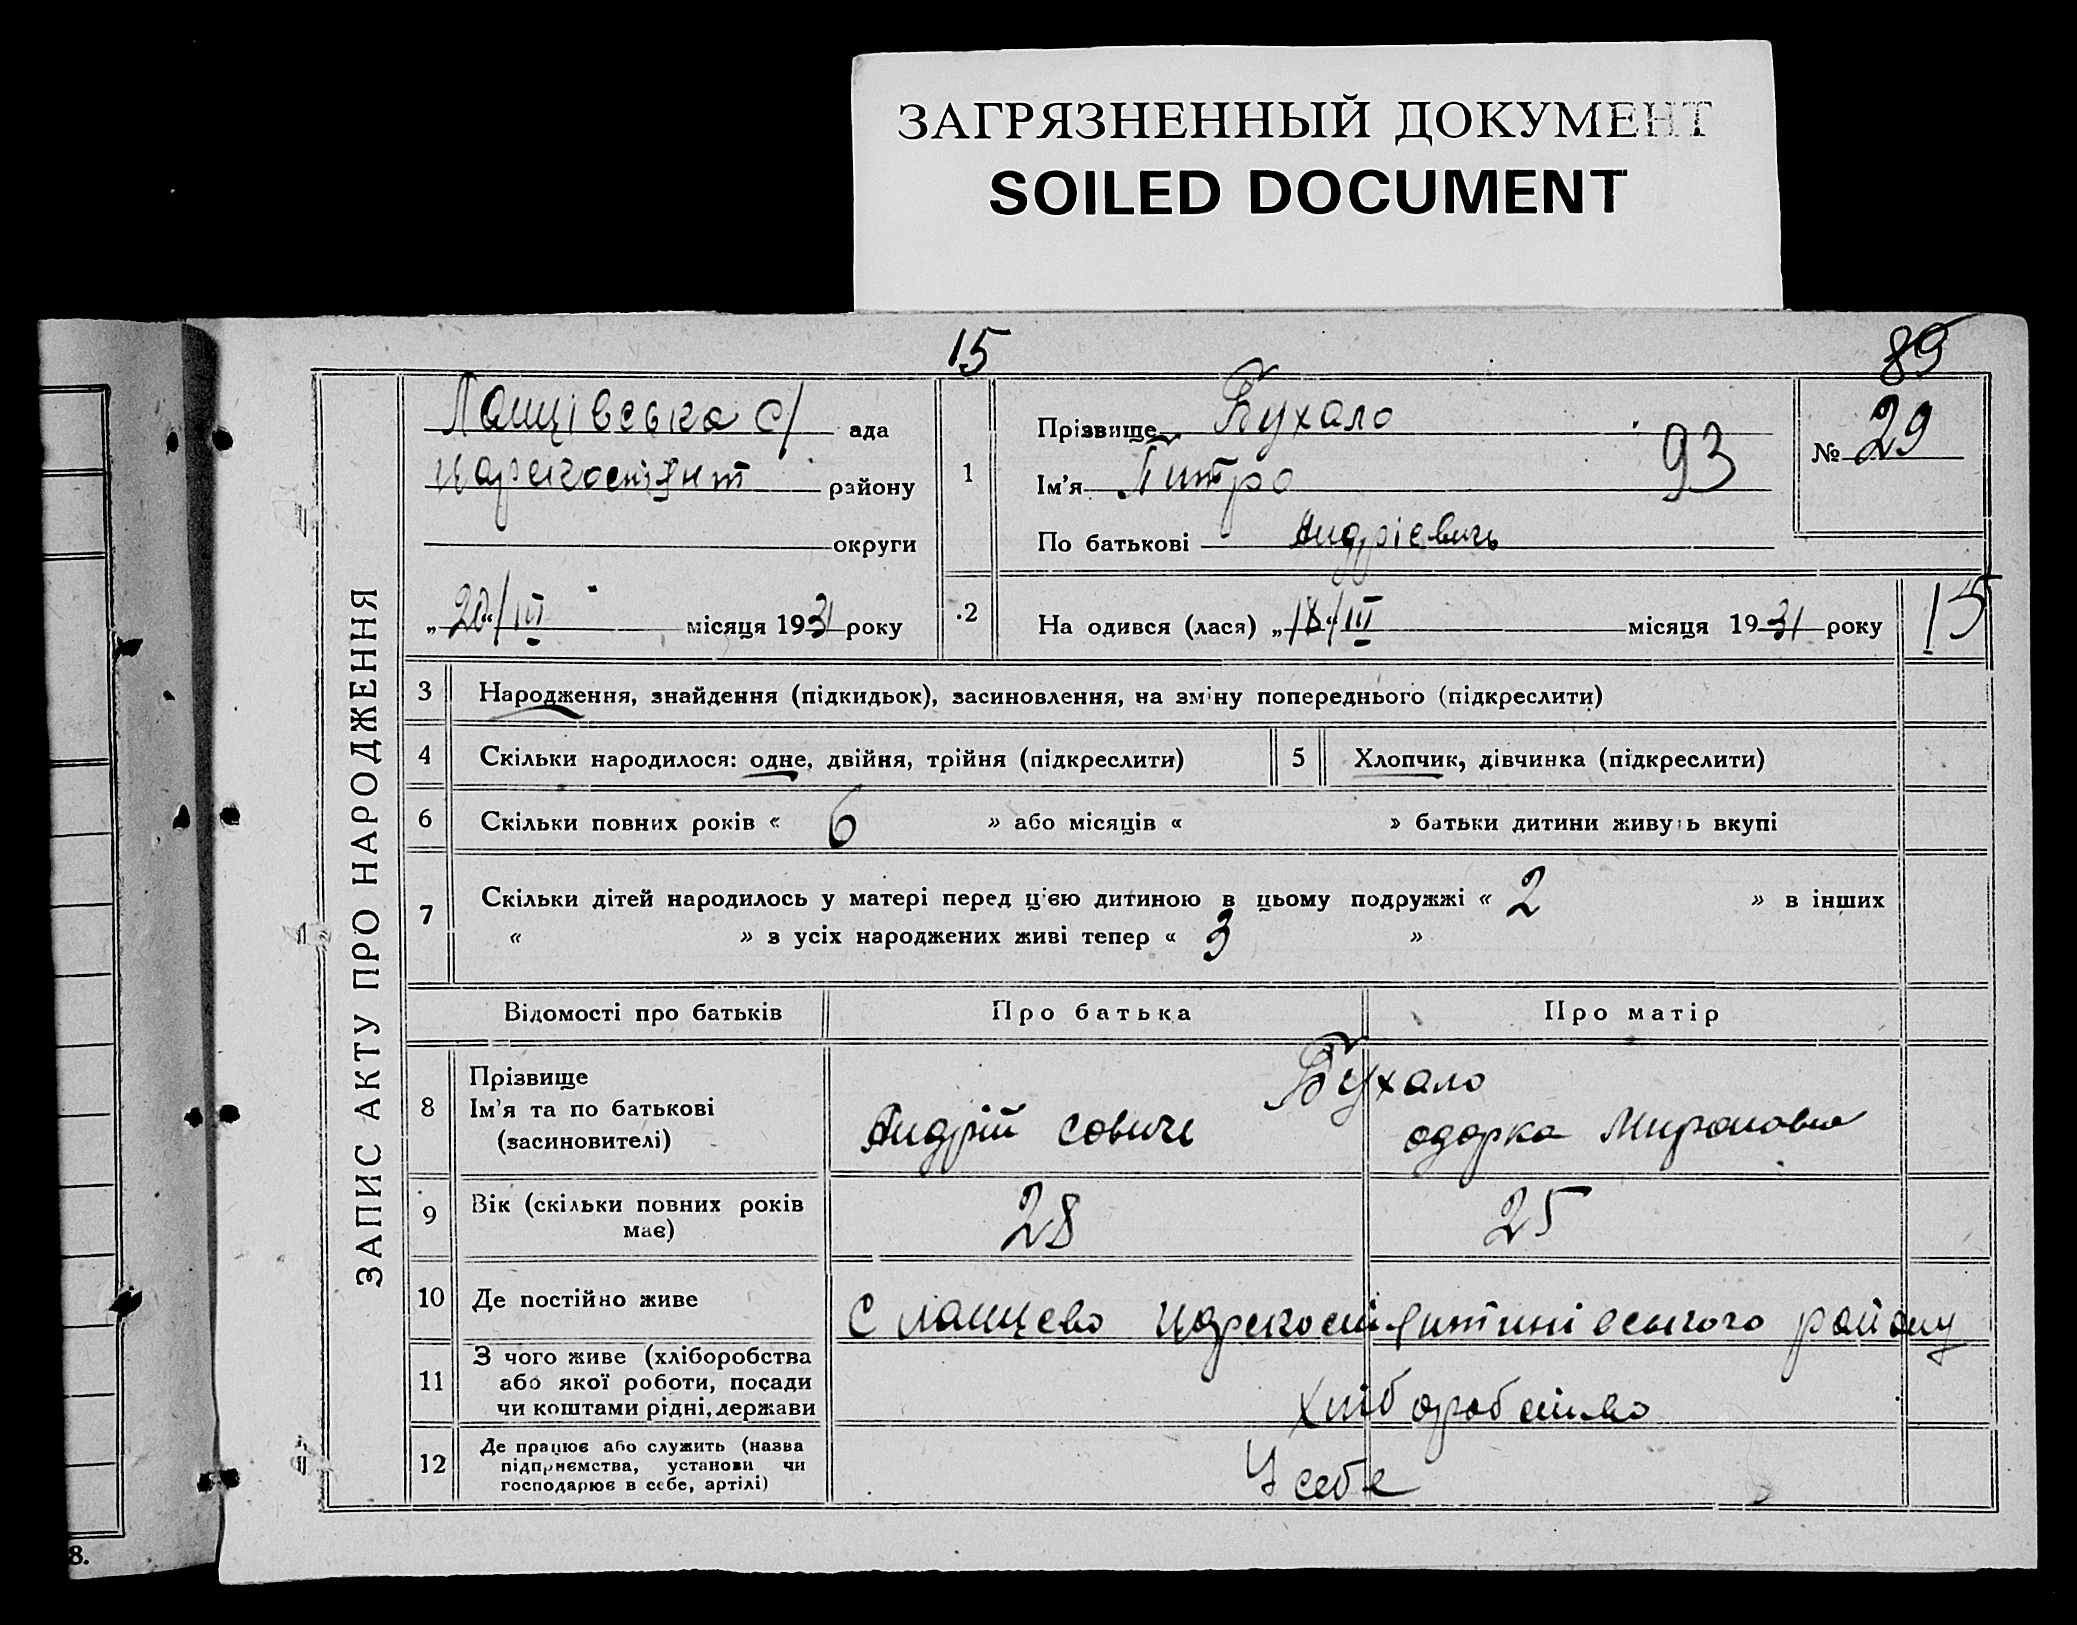 ЗАГРЯЗНЕННЫЙ ДОКУМЕНТ
SOILED DOCUMENT
15
89
ЗАПИС АКТУ ПРО НАРОДЖЕННЯ
Лащівська с/ ада
району
округи
„20“/III місяця 1931 року
1
Прізвище Бухало
Ім'я Питро 93
По батькові Андрієвичь
№ 29
2 На одився (лася) „18“/III місяця 1931 року 15
3 Народження, знайдення (підкидьок), засиновлення, на зміну попереднього (підкреслити)
4 Скільки народилося: одне, двійня, трійня (підкреслити) 5 Хлопчик, дівчинка (підкреслити)
6 Скільки повних років « 6 » або місяців « » батьки дитини живуть вкупі
7 Скільки дітей народилось у матері перед ц'єю дитиною в цьому подружжі « 2 » в інших
« » з усіх народжених живі тепер « 3 »
Відомості про батьків Про батька Про матір
8 Прізвище Бухало
Ім'я та по батькові Андрій совичь одарка Мироновна
(засиновителі)
9 Вік (скільки повних років 28 25
має)
10 Де постійно живе С лащево району
11 З чого живе (хліборобства
або якої роботи, посади
чи коштами рідні, держави хліборобство
12 Де працює або служить (назва
підприємства, установи чи
господарює в себе, артілі) У себе
8.